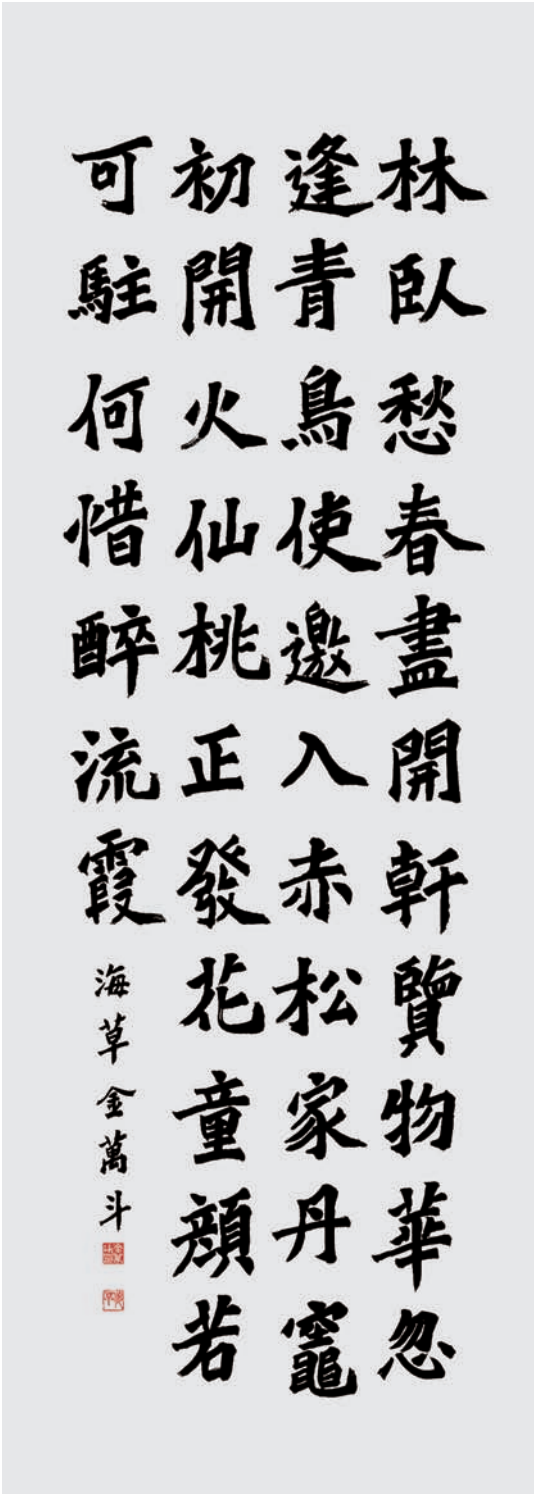 林臥愁春盡開軒覽物華忽
逢青鳥使邀入赤松家丹竈
初開火仙桃正發花童顔若
可駐何惜醉流霞
海草金萬斗